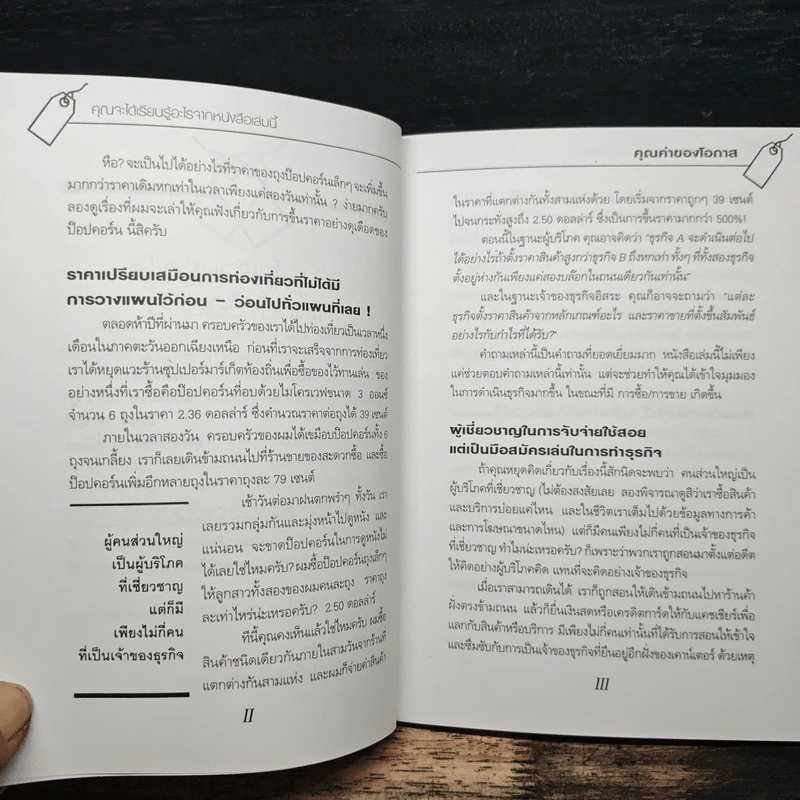 คุณจะได้เรียนรู้อะไรจากหนังสือเล่มนี้
หือ? จะเป็นไปได้อย่างไรที่ราคาของถุงป๊อปคอร์นเล็กๆ จะเพิ่มขึ้น
มากกว่าราคาเดิมหกเท่าในเวลาเพียงแค่สองวันเท่านั้น ? ง่ายมากครับ
ลองดูเรื่องที่ผมจะเล่าให้คุณฟังเกี่ยวกับการขึ้นราคาอย่างดุเดือดของ
ป๊อปคอร์น นี้สิครับ
ราคาเปรียบเสมือนการท่องเที่ยวที่ไม่ได้มี
การวางแผนไว้ก่อน – ว่อนไปทั่วแผนที่เลย !
ตลอดห้าปีที่ผ่านมา ครอบครัวของเราได้ไปท่องเที่ยวเป็นเวลาหนึ่ง
เดือนในภาคตะวันออกเฉียงเหนือ ก่อนที่เราจะเสร็จจากการท่องเที่ยว
เราได้หยุดแวะร้านซุปเปอร์มาร์เก็ตท้องถิ่นเพื่อซื้อของไว้ทานเล่น ของ
อย่างหนึ่งที่เราซื้อคือป๊อปคอร์นที่อบด้วยไมโครเวฟขนาด 3 ออนซ์
จำนวน 6 ถุงในราคา 2.36 ดอลล่าร์ ซึ่งคำนวณราคาต่อถุงได้ 39 เซนต์
ภายในเวลาสองวัน ครอบครัวของผมได้เขมือบป๊อปคอร์นทั้ง 6
ถุงจนเกลี้ยง เราก็เลยเดินข้ามถนนไปที่ร้านขายของสะดวกซื้อ และซื้อ
ป๊อปคอร์นเพิ่มอีกหลายถุงในราคาถุงละ 79 เซนต์
เช้าวันต่อมาฝนตกพรำๆ ทั้งวัน เรา
เลยรวมกลุ่มกันและมุ่งหน้าไปดูหนัง และ
แน่นอน จะขาดป๊อปคอร์นในการดูหนังไม่
ได้เลยใช่ไหมครับ? ผมซื้อป๊อปคอร์นถุงเล็กๆ
ให้ลูกสาวทั้งสองของผมคนละถุง ราคาถุง
ละเท่าไหร่น่ะเหรอครับ? 2.50 ดอลล่าร์
ทีนี้คุณคงเห็นแล้วใช่ไหมครับ ผมซื้อ
สินค้าชนิดเดียวกันภายในสามวันจากร้านที่
แตกต่างกันสามแห่ง และผมก็จ่ายค่าสินค้า
ผู้คนส่วนใหญ่
เป็นผู้บริโภค
ที่เชี่ยวชาญ
แต่ก็มี
เพียงไม่กี่คน
ที่เป็นเจ้าของธุรกิจ
II
คุณค่าของโอกาส
ในราคาที่แตกต่างกันทั้งสามแห่งด้วย โดยเริ่มจากราคาถูกๆ 39 เซนต์
ไปจนกระทั่งสูงถึง 2.50 ดอลล่าร์ ซึ่งเป็นการขึ้นราคามากกว่า 500%!
ตอนนี้ในฐานะผู้บริโภค คุณอาจคิดว่า "ธุรกิจ A จะดำเนินต่อไป
ได้อย่างไรถ้าตั้งราคาสินค้าสูงกว่าธุรกิจ B ถึงหกเท่า ทั้งๆ ที่ทั้งสองธุรกิจ
ตั้งอยู่ห่างกันเพียงแค่สองบล๊อกในถนนเดียวกันเท่านั้น"
และในฐานะเจ้าของธุรกิจอิสระ คุณก็อาจจะถามว่า "แต่ละ
ธุรกิจตั้งราคาสินค้าจากหลักเกณฑ์อะไร และราคาขายที่ตั้งขึ้นสัมพันธ์
อย่างไรกับกำไรที่ได้รับ?"
คำถามเหล่านี้เป็นคำถามที่ยอดเยี่ยมมาก หนังสือเล่มนี้ไม่เพียง
แค่ช่วยตอบคำถามเหล่านี้เท่านั้น แต่จะช่วยทำให้คุณได้เข้าใจมุมมอง
ในการดำเนินธุรกิจมากขึ้น ในขณะที่มี การซื้อ/การขาย เกิดขึ้น
ผู้เชี่ยวชาญในการจับจ่ายใช้สอย
แต่เป็นมือสมัครเล่นในการทำธุรกิจ
ถ้าคุณหยุดคิดเกี่ยวกับเรื่องนี้สักนิดจะพบว่า คนส่วนใหญ่เป็น
ผู้บริโภคที่เชี่ยวชาญ (ไม่ต้องสงสัยเลย ลองพิจารณาดูสิว่าเราซื้อสินค้า
และบริการบ่อยแค่ไหน และในชีวิตเราเต็มไปด้วยข้อมูลทางการค้า
และการโฆษณาขนาดไหน) แต่ก็มีคนเพียงไม่กี่คนที่เป็นเจ้าของธุรกิจ
ที่เชี่ยวชาญ ทำไมน่ะเหรอครับ? ก็เพราะว่าพวกเราถูกสอนมาตั้งแต่อดีต
ให้คิดอย่างผู้บริโภคคิด แทนที่จะคิดอย่างเจ้าของธุรกิจ
เมื่อเราสามารถเดินได้ เราก็ถูกสอนให้เดินข้ามถนนไปหาร้านค้า
ฝั่งตรงข้ามถนน แล้วก็ยื่นเงินสดหรือเครดิตการ์ดให้กับแคชเชียร์เพื่อ
แลกกับสินค้าหรือบริการ มีเพียงไม่กี่คนเท่านั้นที่ได้รับการสอนให้เข้าใจ
และซึมซับกับการเป็นเจ้าของธุรกิจที่ยืนอยู่อีกฝั่งของเคาน์เตอร์ ด้วยเหตุ
III